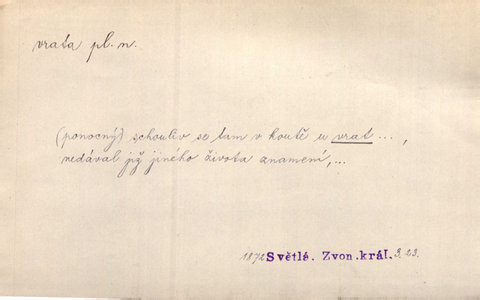 vrata pl. n.
(ponocný) schouliv se tam v koutě u vrat ...,
nedával již jiného života znamení,...
1872 Světlá. Zvon.král. 3.23.